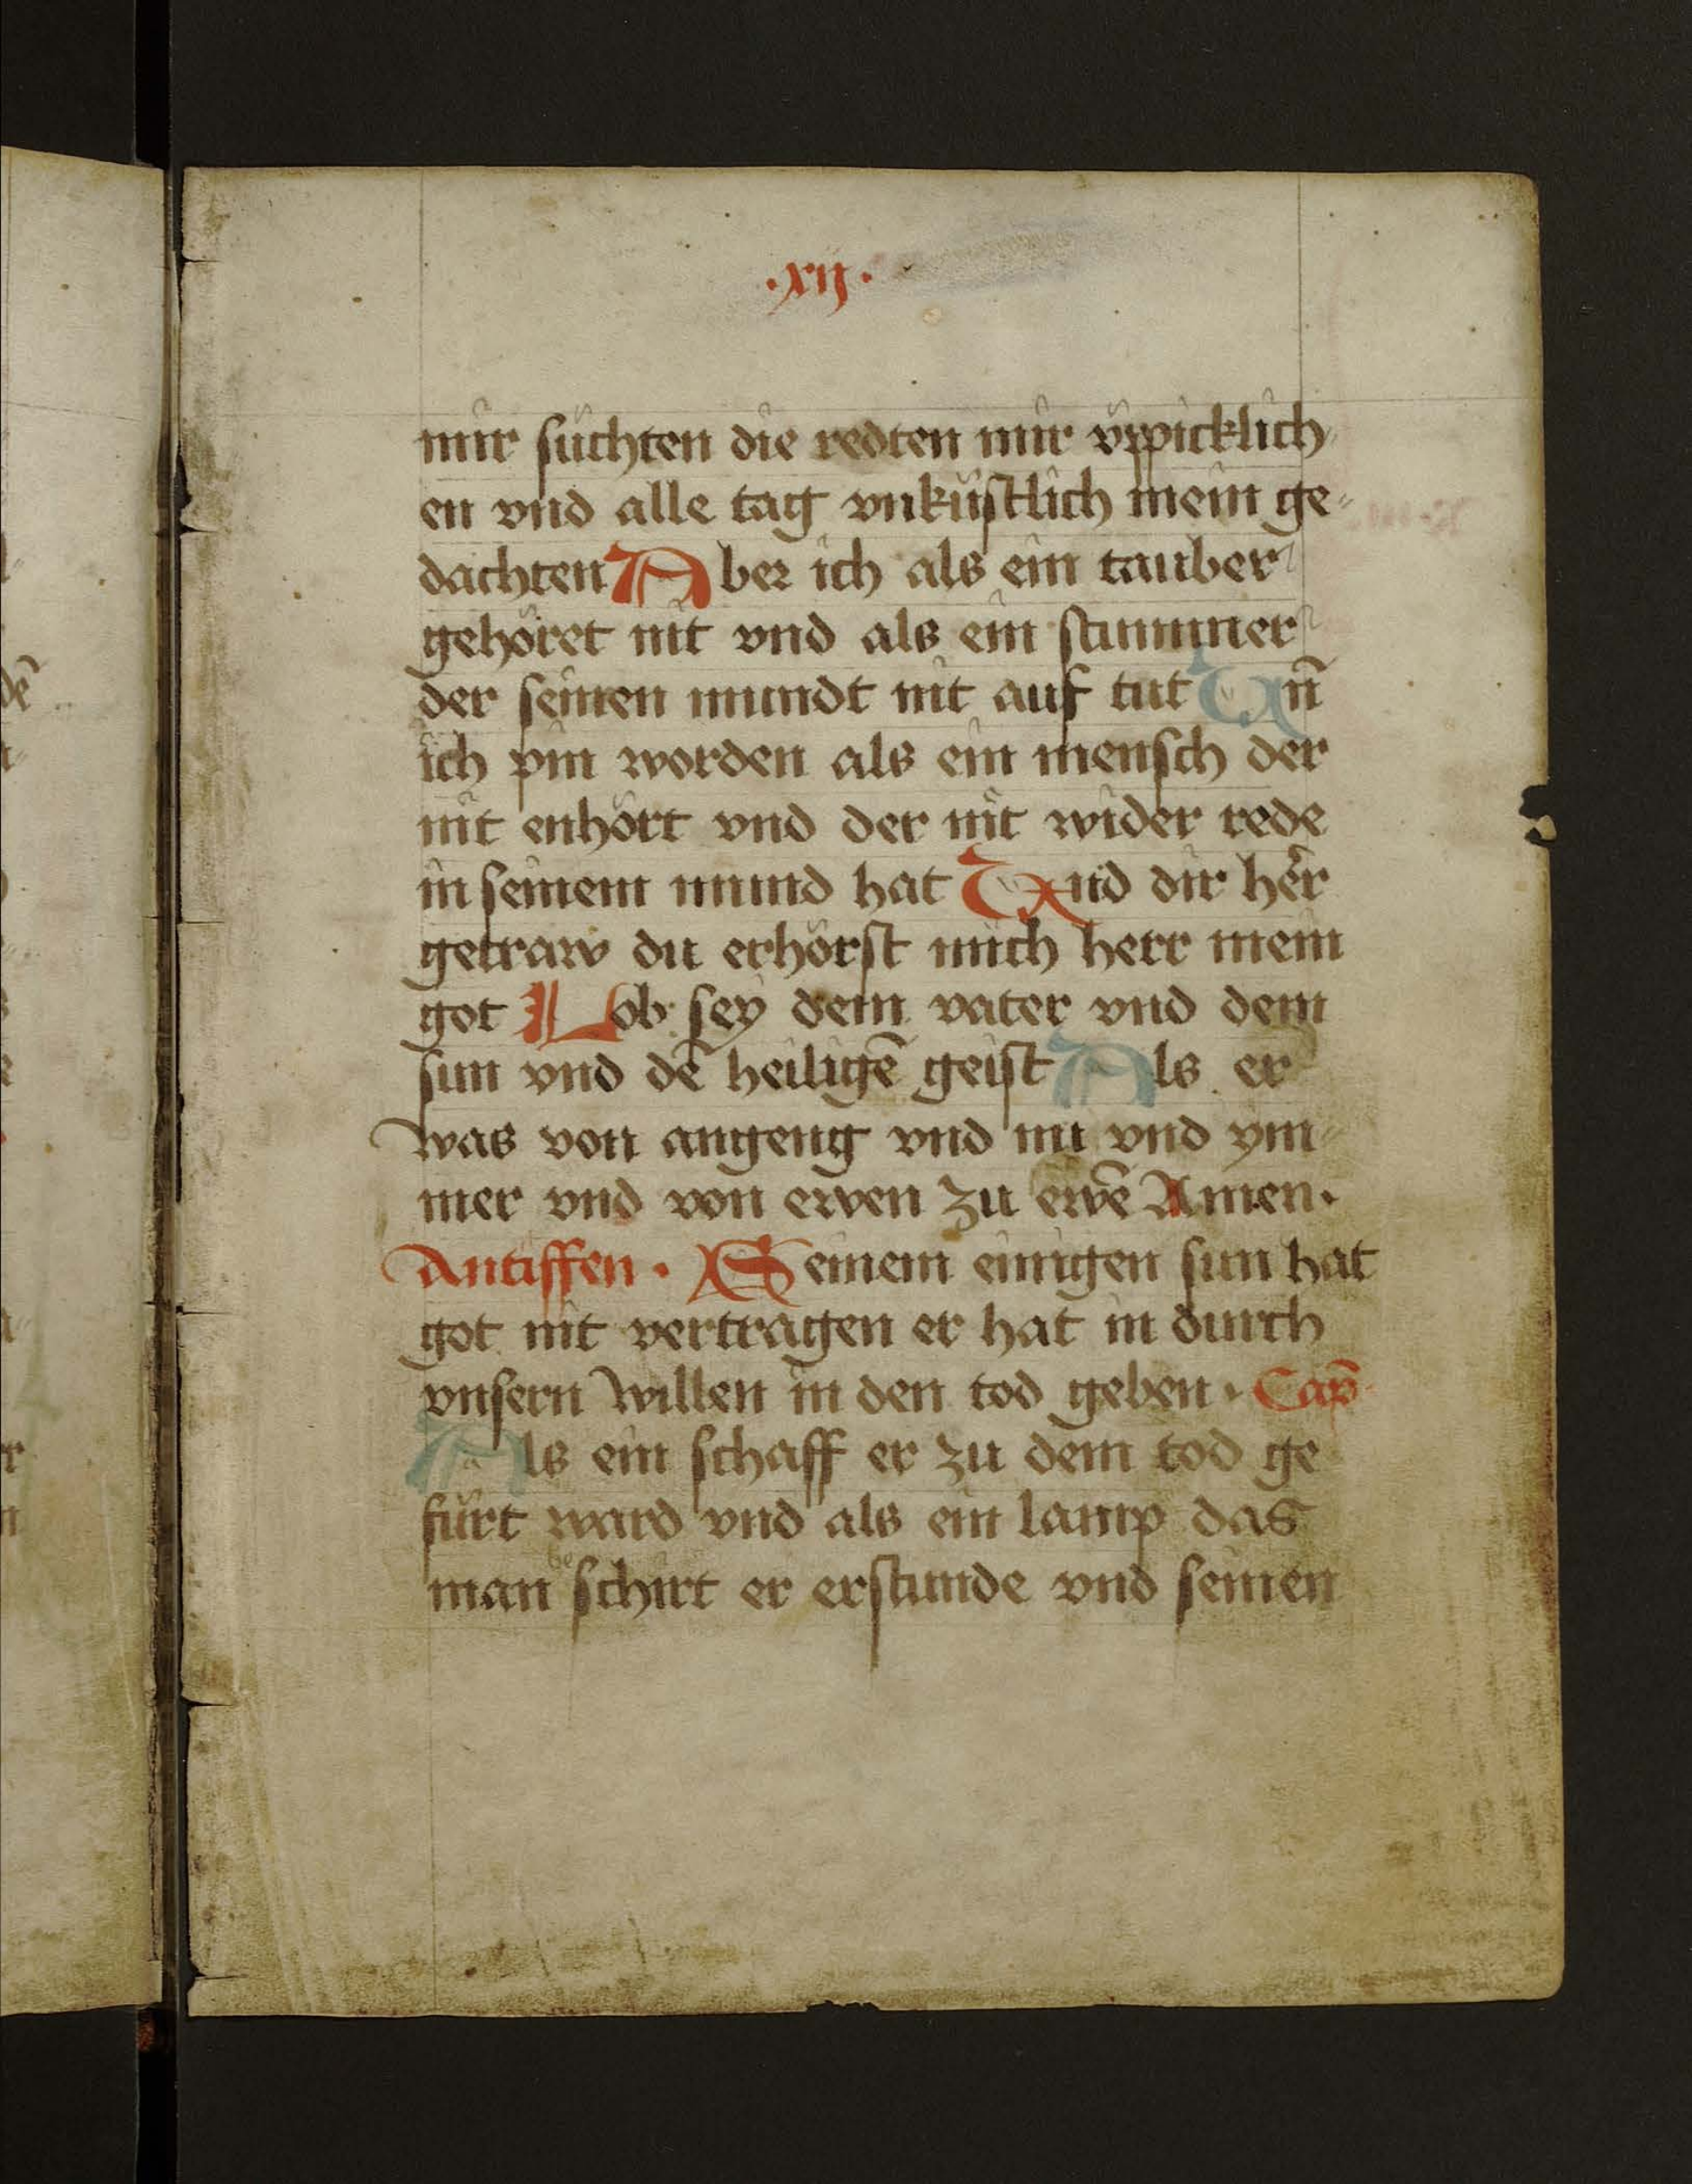 ·xij·
mir suchten die redten mir üppicklich
en vnd alle tag vnküstlich mein ge-
dachten Aber ich als ein tauber
gehöret nit vnd als ein stummer
der seinen mundt nit auf tut Vn̄
ich pin worden als ein mensch der
nit enhört vnd der nit wider rede
in seinem mund hat Vnd dir her
getraw du erhörst mich herr mein
got Lob sey dem vater vnd dem
sun vnd dē heiligē geist Als er
was von angeng vnd nu vnd ym-
mer vnd von ewen zu ewē Amen·
Antiffen· Seinem einigen sun hat
got nit vertragen er hat in durch
vnsern willen in den tod geben· Cap̄
Als ein schaff er zu dem tod ge
fürt ward vnd als ein lamp das
man beschirt er erstunde vnd seinen